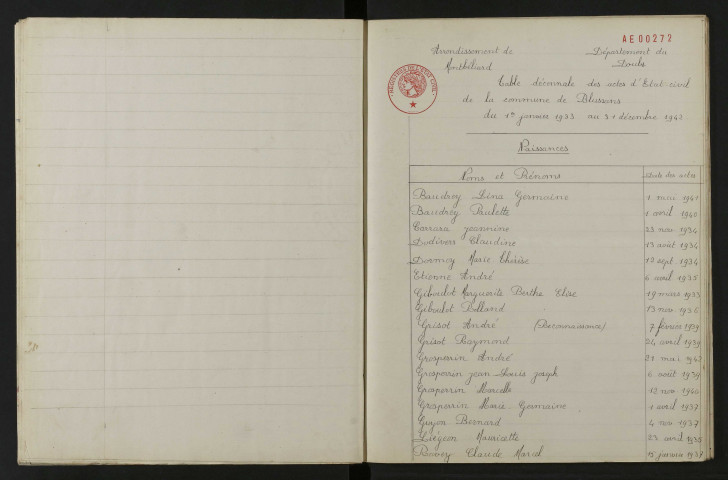 AE00272
Arrondissement de
Montbéliard
Département du
Doubs
Table décennale des actes d'Etat-civil
de la commune de Blussans
du 1er janvier 1933 au 31 décembre 1942
Naissances
Noms et Prénoms Date des actes
Baudrey Léna Germaine 1 mai 1941
Baudrey Paulette 1 avril 1940
Carrara Jeannine 23 nov. 1934
Dodivers Claudine 13 août 1934
Dormoy Marie Thérèse 12 sept. 1934
Etienne André 6 avril 1935
Giboulot Marguerite Berthe Elise 19 mars 1933
Giboulot Rolland 13 nov. 1936
Grisot André (Reconnaissance) 7 février 1939
Grisot Raymond 24 avril 1939
Grosperrin André 21 mai 1942
Grosperrin Jean-Louis Joseph 6 août 1939
Grosperrin Marcelle 12 nov. 1940
Grosperrin Marie-Germaine 1 avril 1937
Guyon Bernard 4 nov 1937
Liégeon Mauricette 23 avril 1938
Claude Marcel 15 janvier 1938